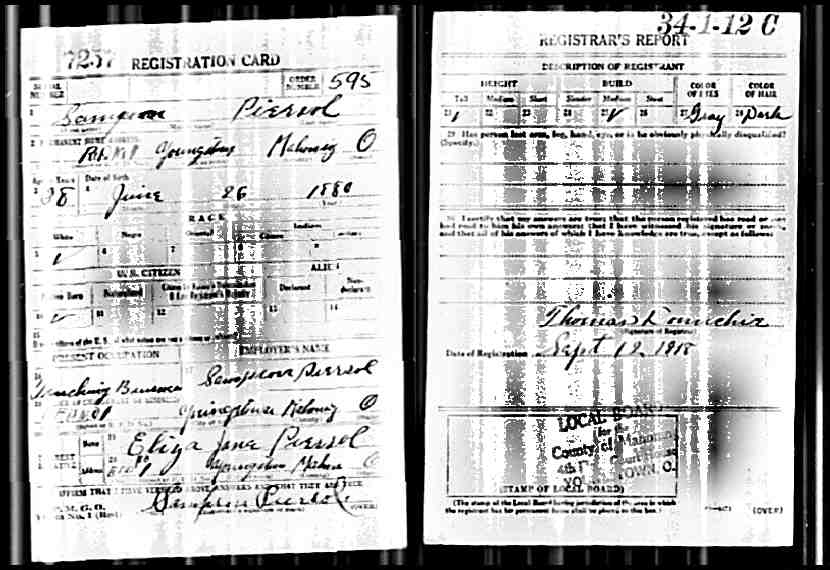 7257 REGISTRATION CARD
SERIAL NUMBER ORDER NUMBER 595
1 Sampson Piersol
2 PERMANENT HOME ADDRESS
Youngstown Mahoning O
Age in Years Date of Birth
3 38 4 June 26 1880
RACE
White Negro Oriental Indian
Citizen
5 ✓ 6 7 8 9
U. S. CITIZEN ALIEN
Native Born Naturalized Declarant Non-declarant
10 ✓ 11 12 13 14
15
PRESENT OCCUPATION EMPLOYER'S NAME
Business Sampson Piersol
Youngstown Mahoning O
NEAREST RELATIVE Name Eliza Jane Piersol
Address Youngstown Mahon O
I AFFIRM THAT I HAVE VERIFIED ABOVE ANSWERS AND THAT THEY ARE TRUE
P. M. G. O.
Form No. 1 (Red) Sampson Piersol (OVER)
34-1-12 C
REGISTRAR'S REPORT
DESCRIPTION OF REGISTRANT
HEIGHT BUILD COLOR OF EYES COLOR OF HAIR
Tall Medium Short Slender Medium Stout
21 ✓ 22 23 24 25 ✓ 26 27 Gray 28 Dark
29 Has person lost arm, leg, hand, eye, or is he obviously physically disqualified?
(Specify.)
30 I certify that my answers are true; that the person registered has read or has
had read to him his own answers; that I have witnessed his signature or mark,
and that all of his answers of which I have knowledge are true, except as follows:
Thomas
(Signature of Registrar)
Date of Registration Sept 12, 1918
LOCAL BOARD
for the
County of Mahoning
Court House
YOUNGSTOWN, O.
(STAMP OF LOCAL BOARD)
(The stamp of the Local Board having jurisdiction of the area in which
the registrant has his permanent home shall be placed in this box.)
(OVER)